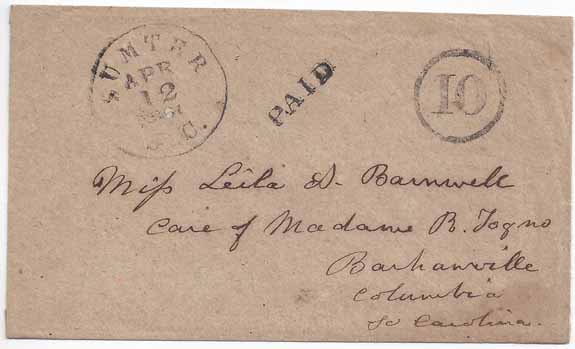 SUMTER
APR
12
S.C.
PAID
10
Miss Leila D. Barnwell
Care of Madame R. Togno
Barhamville
Columbia
So Carolina.